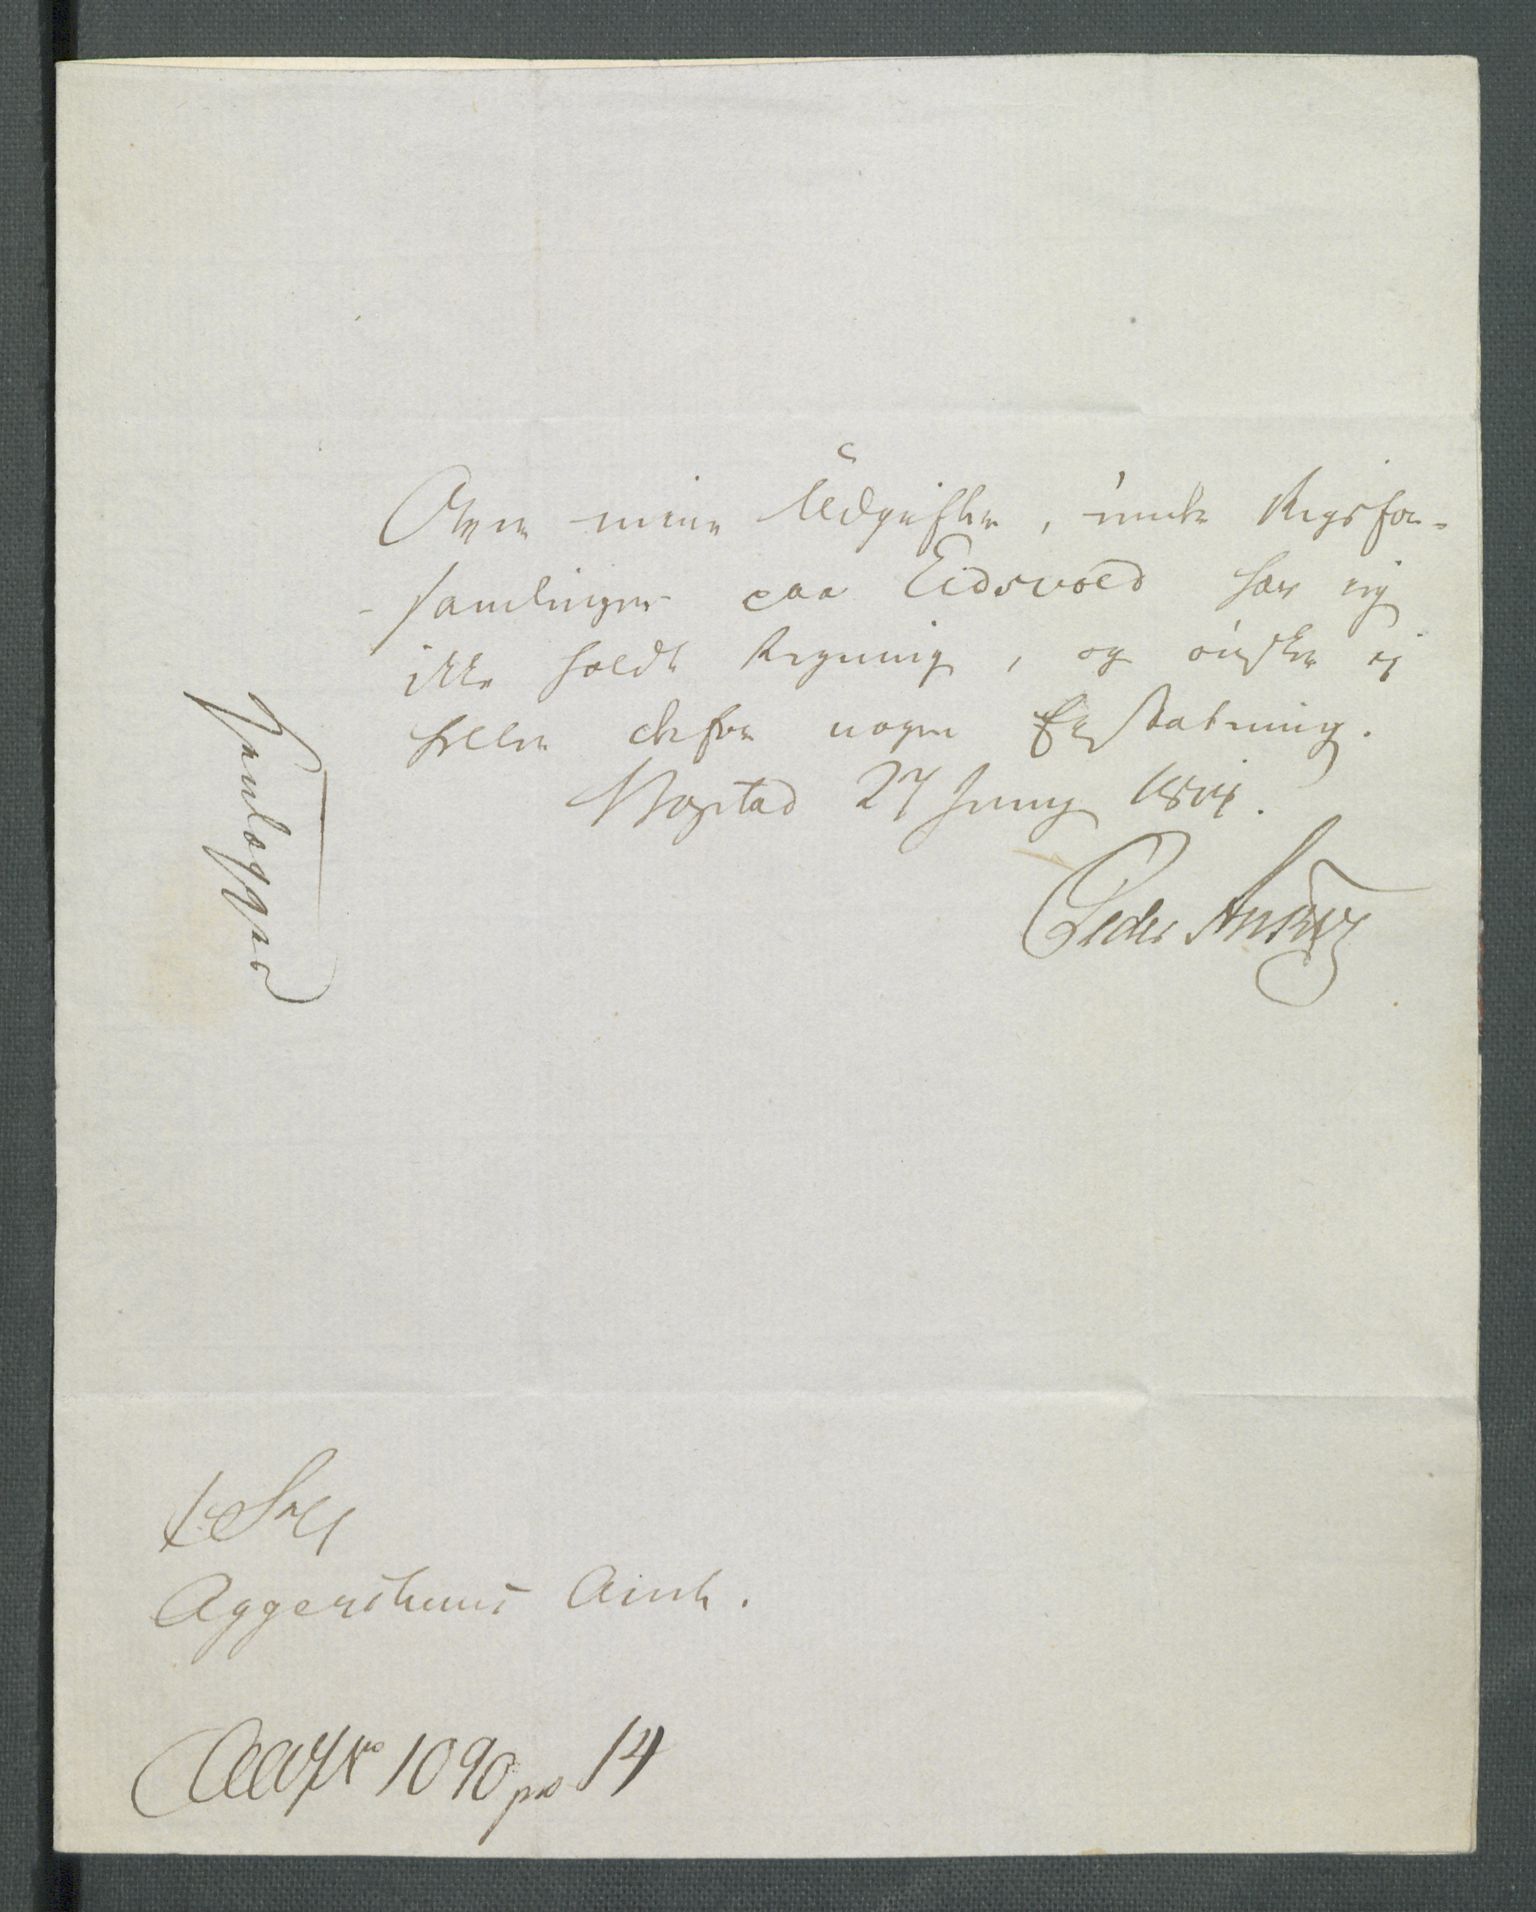 Over mine Udgifter, under Rigsfor-
-samlingen paa Eidsvold har jeg
ikke holdt Regning, og ønsker ej
heller derfor nogen Erstatning.
Bogstad 27 Juny 1814.
Peder Anker
Henlægges
Aggershuus Amt.
No 1090 pro 14